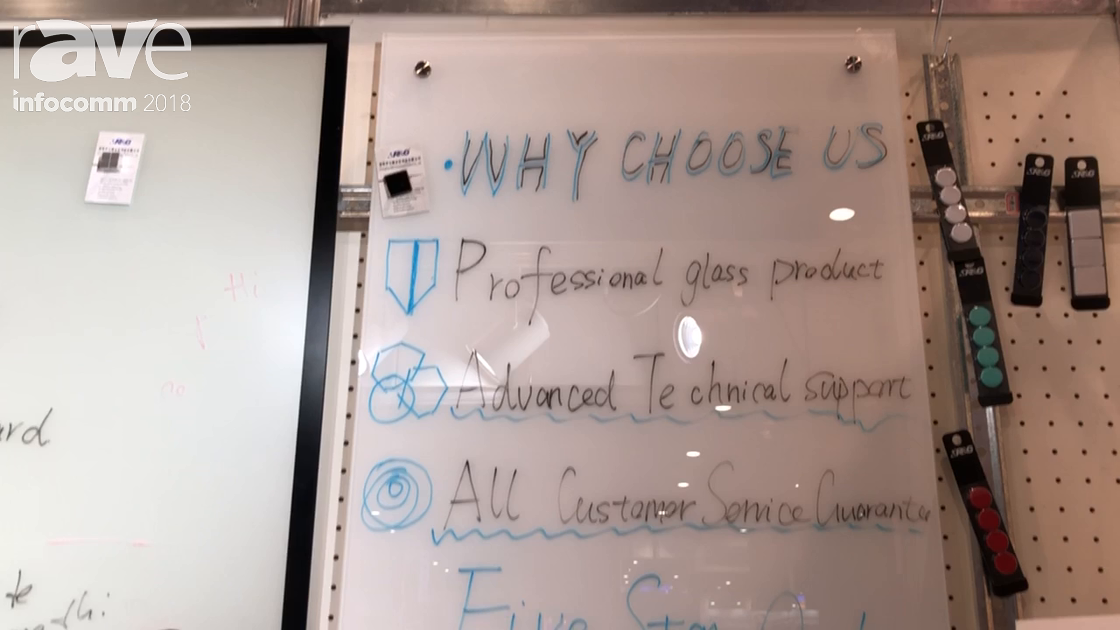 rave
infocomm 2018
• WHY CHOOSE US
Professional glass product
Advanced Technical support
All Customer Service Guarante
Five Star
Hi
no